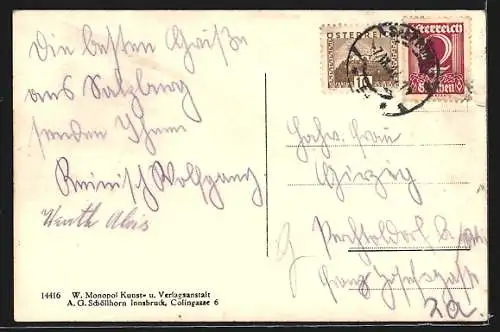 Die besten Grüße
aus Salzburg
senden Ihnen
Reinisch Wolfgang
Alois
ÖSTERREICH
10
Österreich
2
Groschen
Hochw. Frau
Franz Josefsgasse
2a
14416 W. Monopol Kunst- u. Verlagsanstalt
A. G. Schöllhorn Innsbruck, Colingasse 6